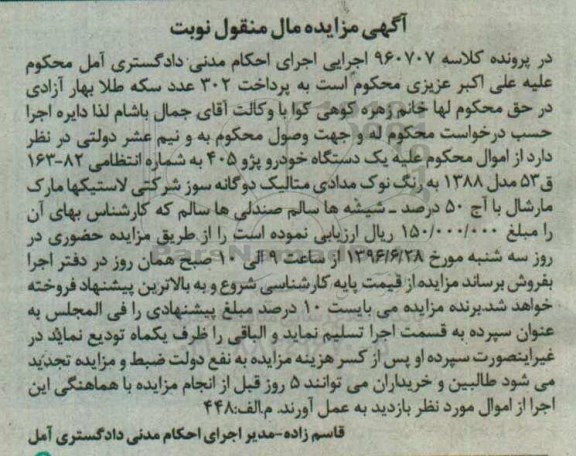 آگهی مزایده مال منقول نوبت
در پرونده کلاسه ۹۶۰۷۰۷ اجرایی اجرای احکام مدنی دادگستری آمل محکوم
علیه علی اکبر عزیزی محکوم است به پرداخت ۳۰۲ عدد سکه طلا بهار آزادی
در حق محکوم لها خانم زهره کوهی کوا با وکالت آقای جمال باشام لذا دایره اجرا
حسب درخواست محکوم له و جهت وصول محکوم به و نیم عشر دولتی در نظر
دارد از اموال محکوم علیه یک دستگاه خودرو پژو ۴۰۵ به شماره انتظامی ۸۲-۱۶۳
ق۵۳ مدل ۱۳۸۸ به رنگ نوک مدادی متالیک دوگانه سوز شرکتی لاستیکها مارک
مارشال با آج ۵۰ درصد ـ شیشه ها سالم صندلی ها سالم که کارشناس بهای آن
را مبلغ ۱۵۰/۰۰۰/۰۰۰ ریال ارزیابی نموده است را از طریق مزایده حضوری در
روز سه شنبه مورخ ۱۳۹۶/۶/۲۸ از ساعت ۹ الی ۱۰ صبح همان روز در دفتر اجرا
بفروش برساند مزایده از قیمت پایه کارشناسی شروع و به بالاترین پیشنهاد فروخته
خواهد شد.برنده مزایده می بایست ۱۰ درصد مبلغ پیشنهادی را فی المجلس به
عنوان سپرده به قسمت اجرا تسلیم نماید و الباقی را ظرف یکماه تودیع نماید در
غیراینصورت سپرده او پس از کسر هزینه مزایده به نفع دولت ضبط و مزایده تجدید
می شود طالبین و خریداران می توانند ۵ روز قبل از انجام مزایده با هماهنگی این
اجرا از اموال مورد نظر بازدید به عمل آورند. م.الف:۴۴۸
قاسم زاده-مدیر اجرای احکام مدنی دادگستری آمل